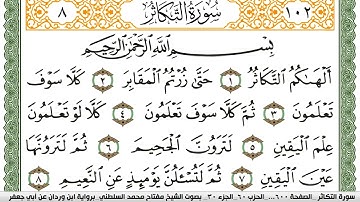 ٨ سُورَةُ التَّكَاثُرِ ١٠٢
بِسْمِ اللَّهِ الرَّحْمَٰنِ الرَّحِيمِ
أَلْهَاكُمُ التَّكَاثُرُ ١ حَتَّىٰ زُرْتُمُ الْمَقَابِرَ ٢ كَلَّا سَوْفَ
تَعْلَمُونَ ٣ ثُمَّ كَلَّا سَوْفَ تَعْلَمُونَ ٤ كَلَّا لَوْ تَعْلَمُونَ
عِلْمَ الْيَقِينِ ٥ لَتَرَوُنَّ الْجَحِيمَ ٦ ثُمَّ لَتَرَوُنَّهَا
عَيْنَ الْيَقِينِ ٧ ثُمَّ لَتُسْأَلُنَّ يَوْمَئِذٍ عَنِ النَّعِيمِ ٨
سورة التكاثر _الصفحة ٦٠٠_ الحزب ٦٠_ الجزء ٣٠_ بصوت الشيخ مفتاح محمد السلطني_ برواية ابن وردان عن أبي جعفر